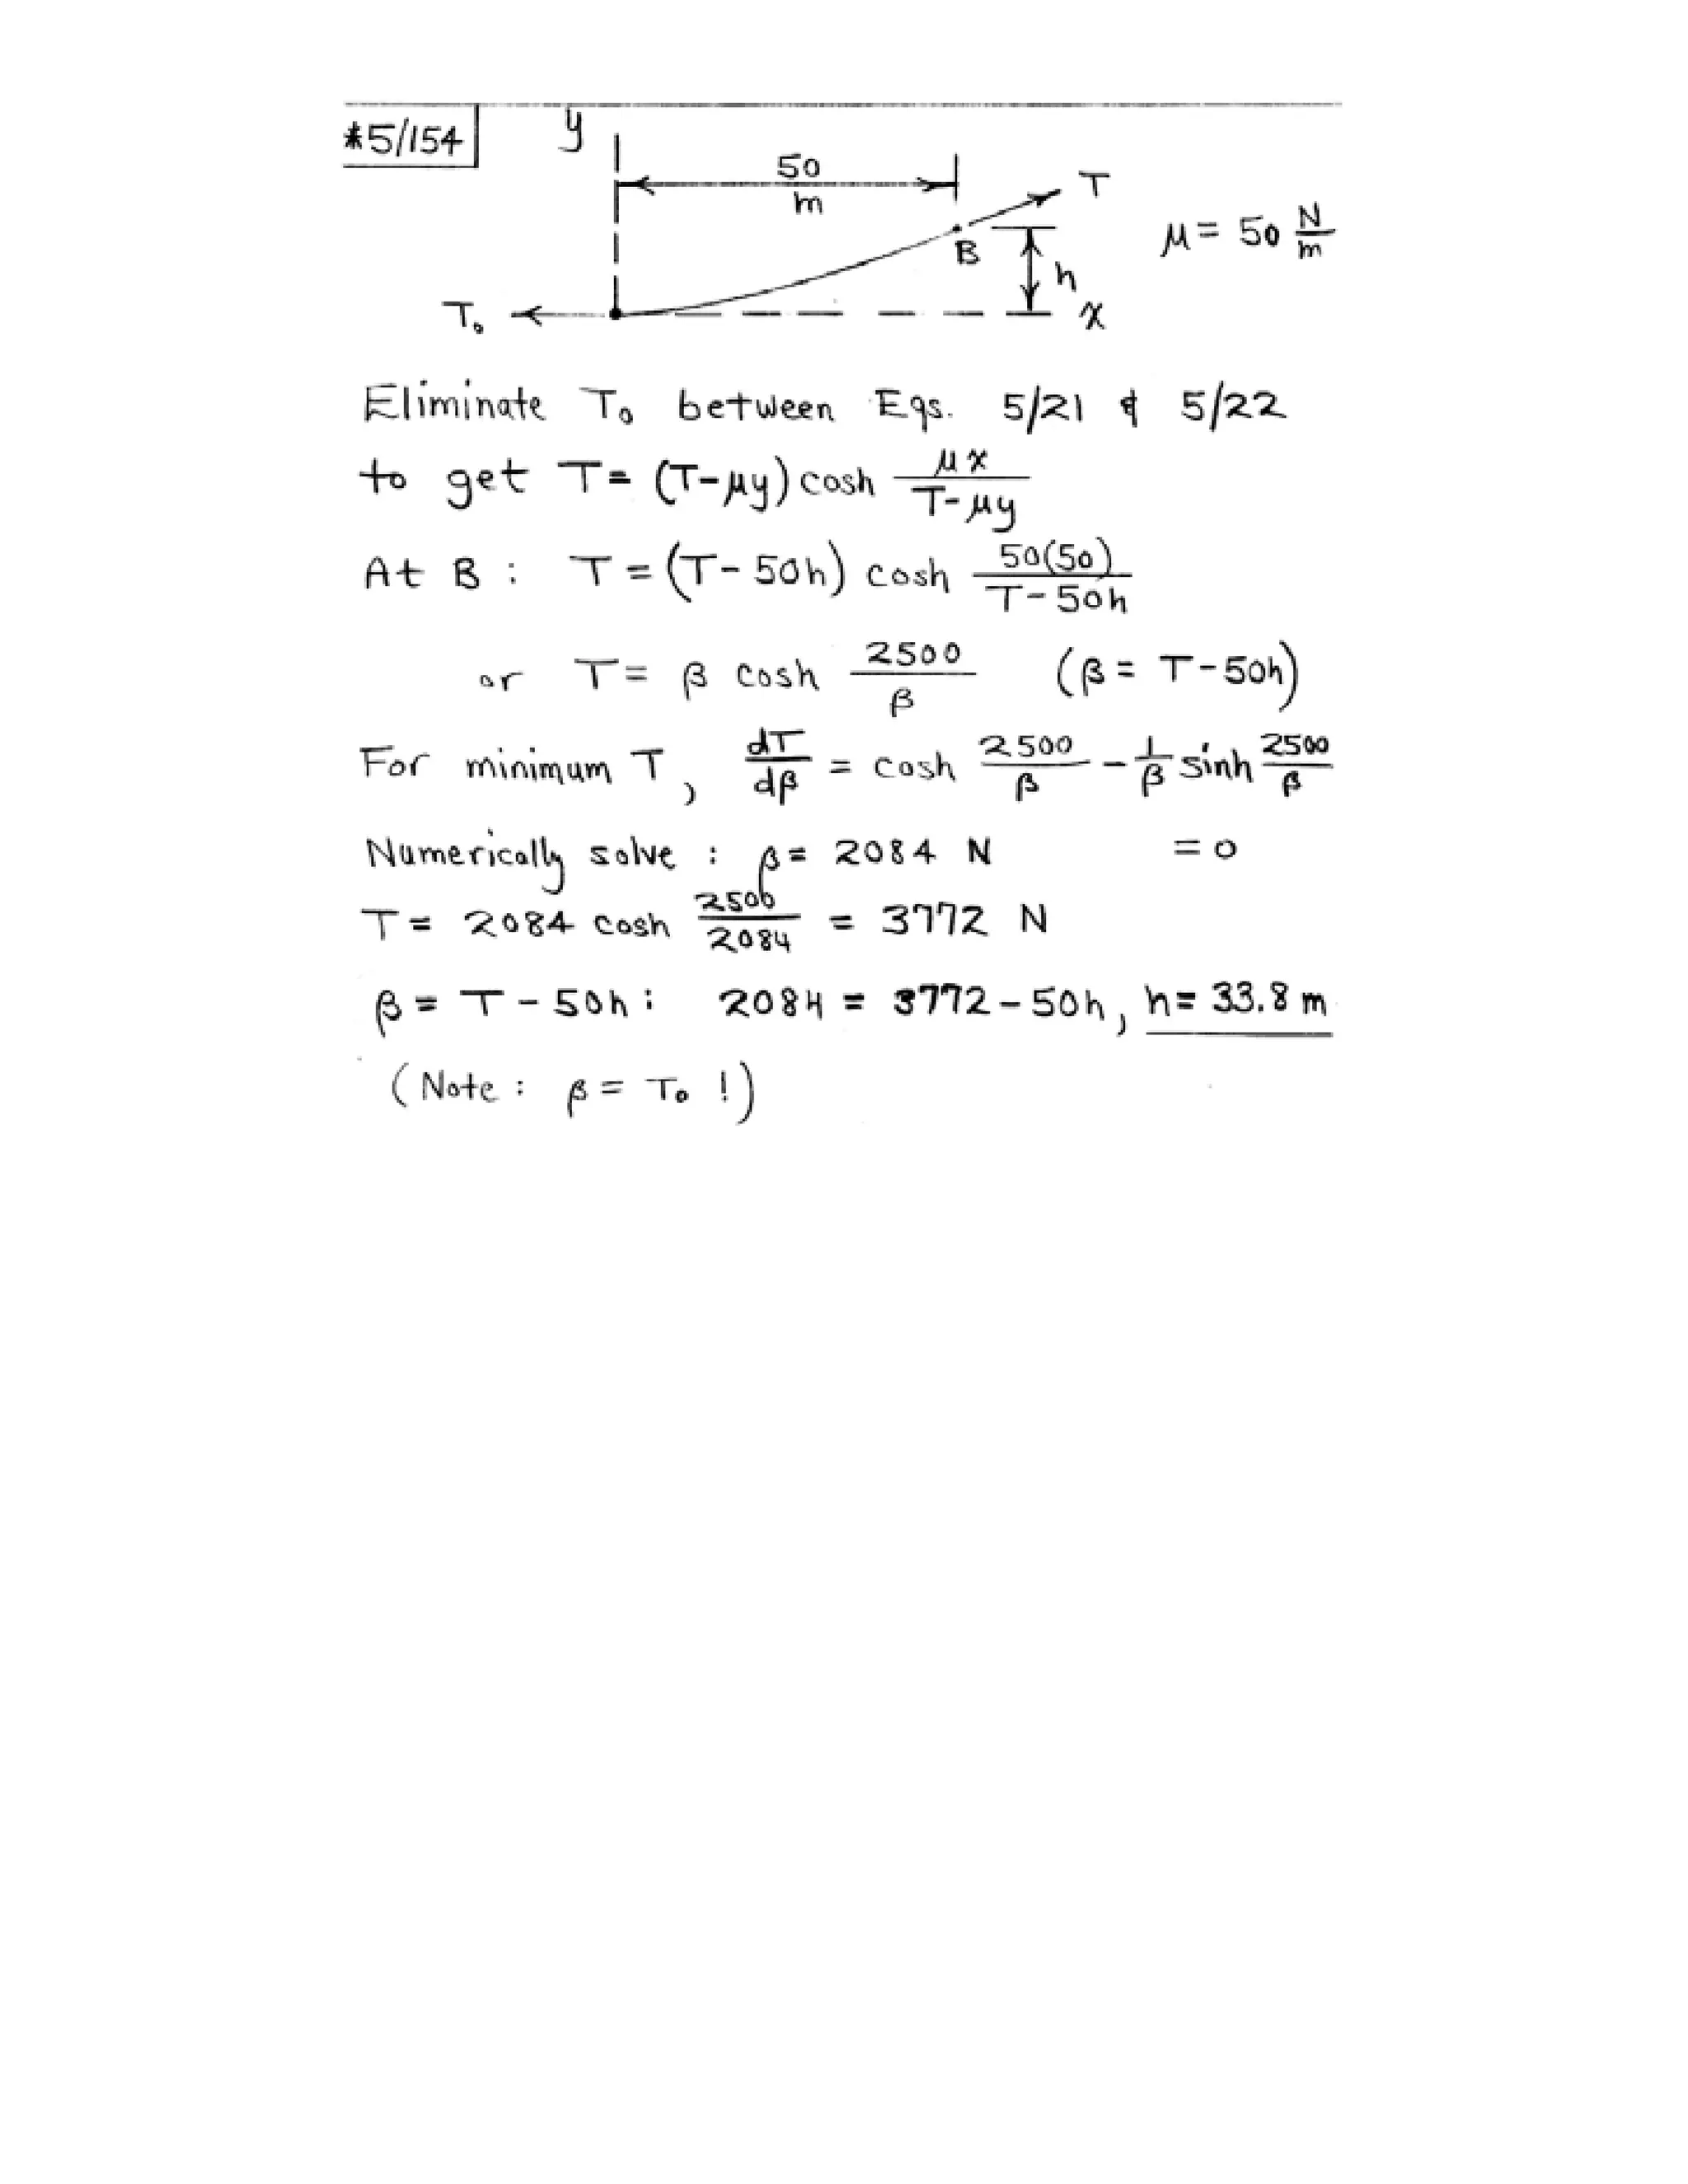 *5/154
y
50
m
T
μ = 50 N/m
B
h
T₀
x
Eliminate T₀ between Eqs. 5/21 & 5/22
to get T = (T-μy) cosh μx/(T-μy)
At B : T = (T - 50h) cosh 50(50)/(T-50h)
or T = β cosh 2500/β (β = T-50h)
For minimum T, dT/dβ = cosh 2500/β - 1/β sinh 2500/β
Numerically solve : β = 2084 N = 0
T = 2084 cosh 2500/2084 = 3772 N
β = T - 50h : 2084 = 3772 - 50h, h = 33.8 m
(Note : β = T₀ !)